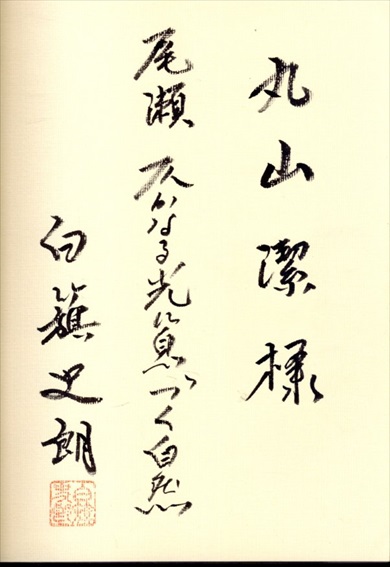 丸山潔様
尾瀬 仄かなる光に息づく自然
白籏史朗